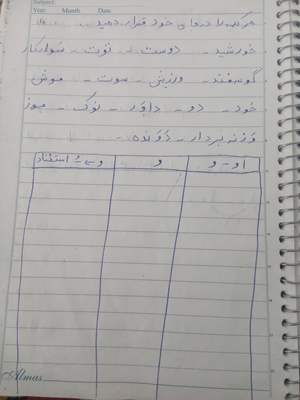 Subject:
Year. Month Date
هر کلمه را در جای خود قرار دهید.
خورشید - دوست - توت - شوارکار
گوسفند - ورزش - سوت - موش
خود - دو - داور - نوک - موز
وزنه بردار - دونده -
او - و | و | و ـُ استثناء
Almas